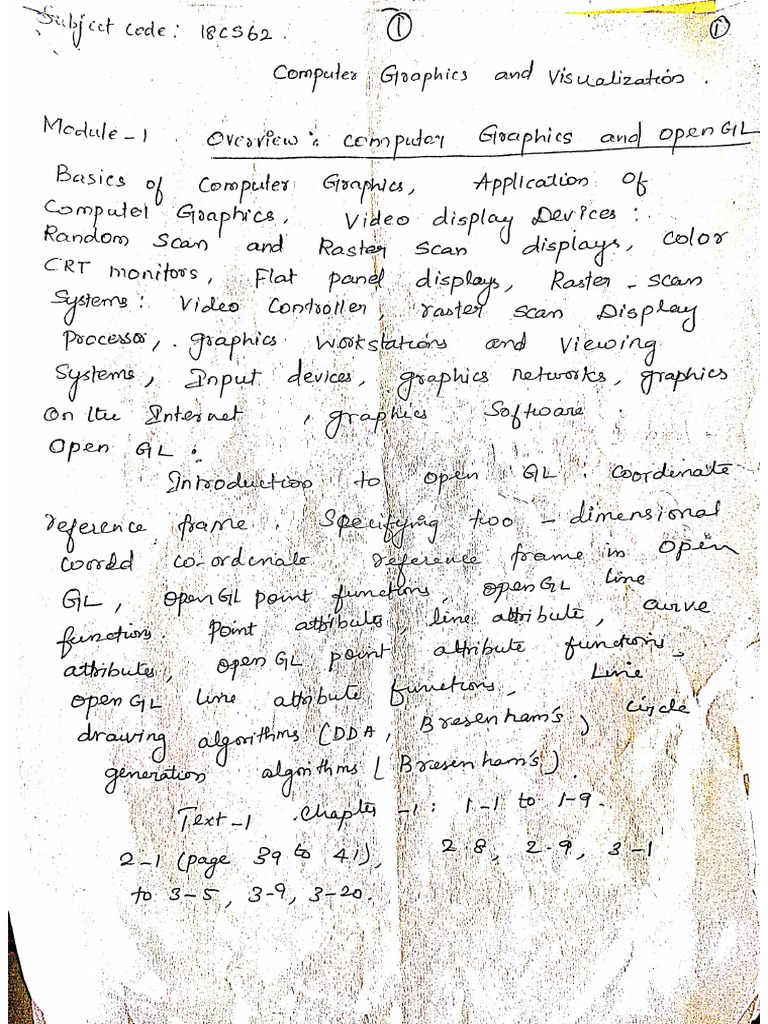 Subject code: 18CS62.
①
①
Computer Graphics and Visualization.
Module-1 Overview: Computer Graphics and openGL
Basics of Computer Graphics, Application of
Computer Graphics, Video display Devices:
Random Scan and Raster Scan displays, color
CRT monitors, Flat panel displays, Raster-scan
Systems: Video Controller, raster scan Display
Processor, graphics workstations and viewing
Systems, Input devices, graphics networks, graphics
on the Internet, graphics Software.
Open GL:
Introduction to open GL: coordinate
reference frame. Specifying two-dimensional
world co-ordinate reference frame in open
GL, openGL point functions, openGL line
functions. Point attributes, line attribute, curve
attributes, openGL point attribute functions,
openGL line attribute functions, Line
drawing algorithms (DDA, Bresenham's) circle
generation algorithms (Bresenham's).
Text-1 Chapter-1: 1-1 to 1-9.
2-1 (page 39 to 41), 2.8, 2.9, 3-1
to 3-5, 3-9, 3-20.